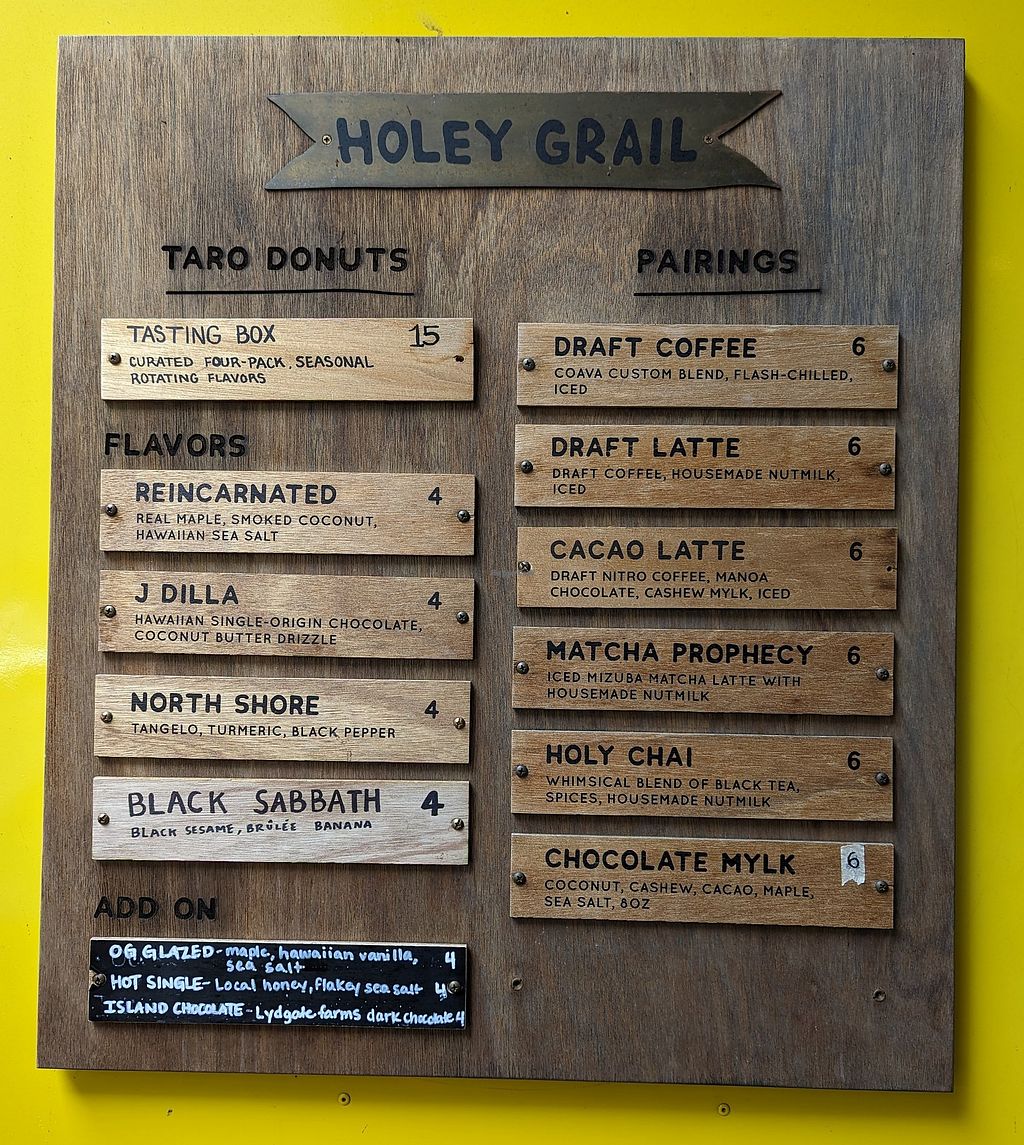 HOLEY GRAIL
TARO DONUTS
TASTING BOX 15
CURATED FOUR-PACK, SEASONAL
ROTATING FLAVORS
FLAVORS
REINCARNATED 4
REAL MAPLE, SMOKED COCONUT,
HAWAIIAN SEA SALT
J DILLA 4
HAWAIIAN SINGLE-ORIGIN CHOCOLATE,
COCONUT BUTTER DRIZZLE
NORTH SHORE 4
TANGELO, TURMERIC, BLACK PEPPER
BLACK SABBATH 4
BLACK SESAME, BRÛLÉE BANANA
ADD ON
OG GLAZED- maple, hawaiian vanilla, 4
sea salt
HOT SINGLE- Local honey, flakey sea salt 4
ISLAND CHOCOLATE - Lydgate farms dark chocolate 4
PAIRINGS
DRAFT COFFEE 6
COAVA CUSTOM BLEND, FLASH-CHILLED,
ICED
DRAFT LATTE 6
DRAFT COFFEE, HOUSEMADE NUTMILK,
ICED
CACAO LATTE 6
DRAFT NITRO COFFEE, MANOA
CHOCOLATE, CASHEW MYLK, ICED
MATCHA PROPHECY 6
ICED MIZUBA MATCHA LATTE WITH
HOUSEMADE NUTMILK
HOLY CHAI 6
WHIMSICAL BLEND OF BLACK TEA,
SPICES, HOUSEMADE NUTMILK
CHOCOLATE MYLK 6
COCONUT, CASHEW, CACAO, MAPLE,
SEA SALT, 8OZ